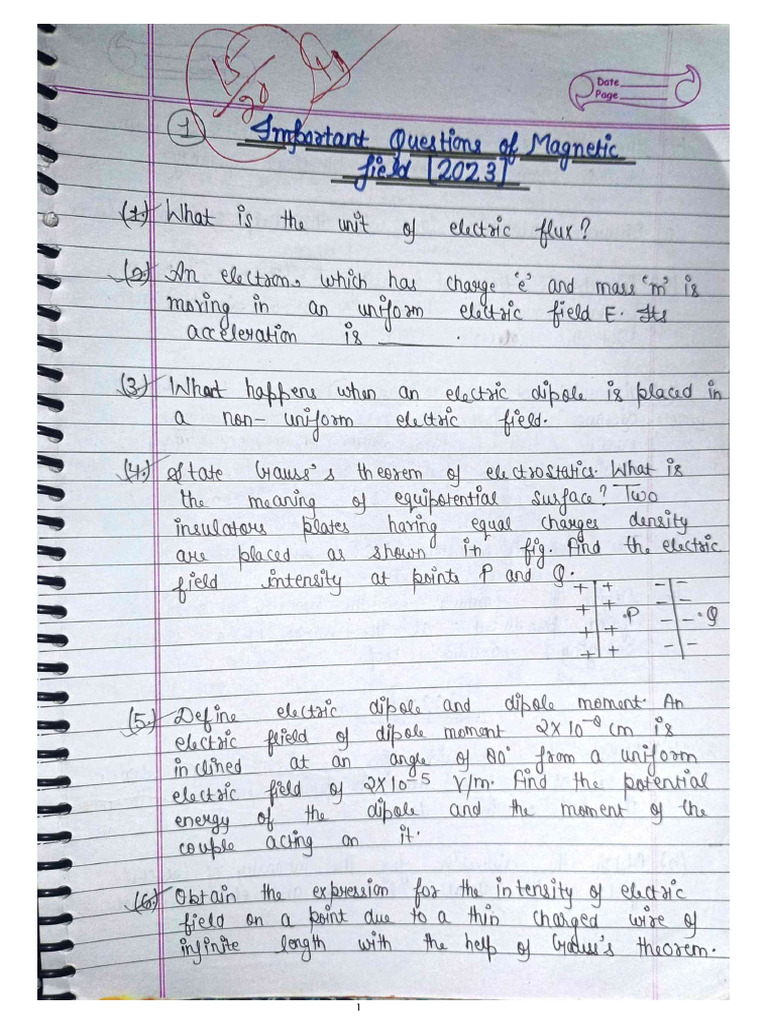 15/20
Date
Page
1
Important Questions of Magnetic
field [2023]
(1.) What is the unit of electric flux?
(2.) An electron, which has charge 'e' and mass 'm' is
moving in an uniform electric field E. Its
acceleration is ______.
(3.) What happens when an electric dipole is placed in
a non-uniform electric field.
(4.) State Gauss's theorem of electrostatics. What is
the meaning of equipotential surface? Two
insulators plates having equal charges density
are placed as shown in fig. Find the electric
field intensity at points P and Q.
+ + - -
+ + .P - - .Q
+ + - -
+ +
(5.) Define electric dipole and dipole moment. An
electric flield of dipole moment 2×10⁻⁸ cm is
inclined at an angle of 80° from a uniform
electric field of 2×10⁻⁵ V/m. Find the potential
energy of the dipole and the moment of the
couple acting on it.
(6.) Obtain the expression for the intensity of electric
field on a point due to a thin charged wire of
infinite length with the help of Gauss's theorem.
1